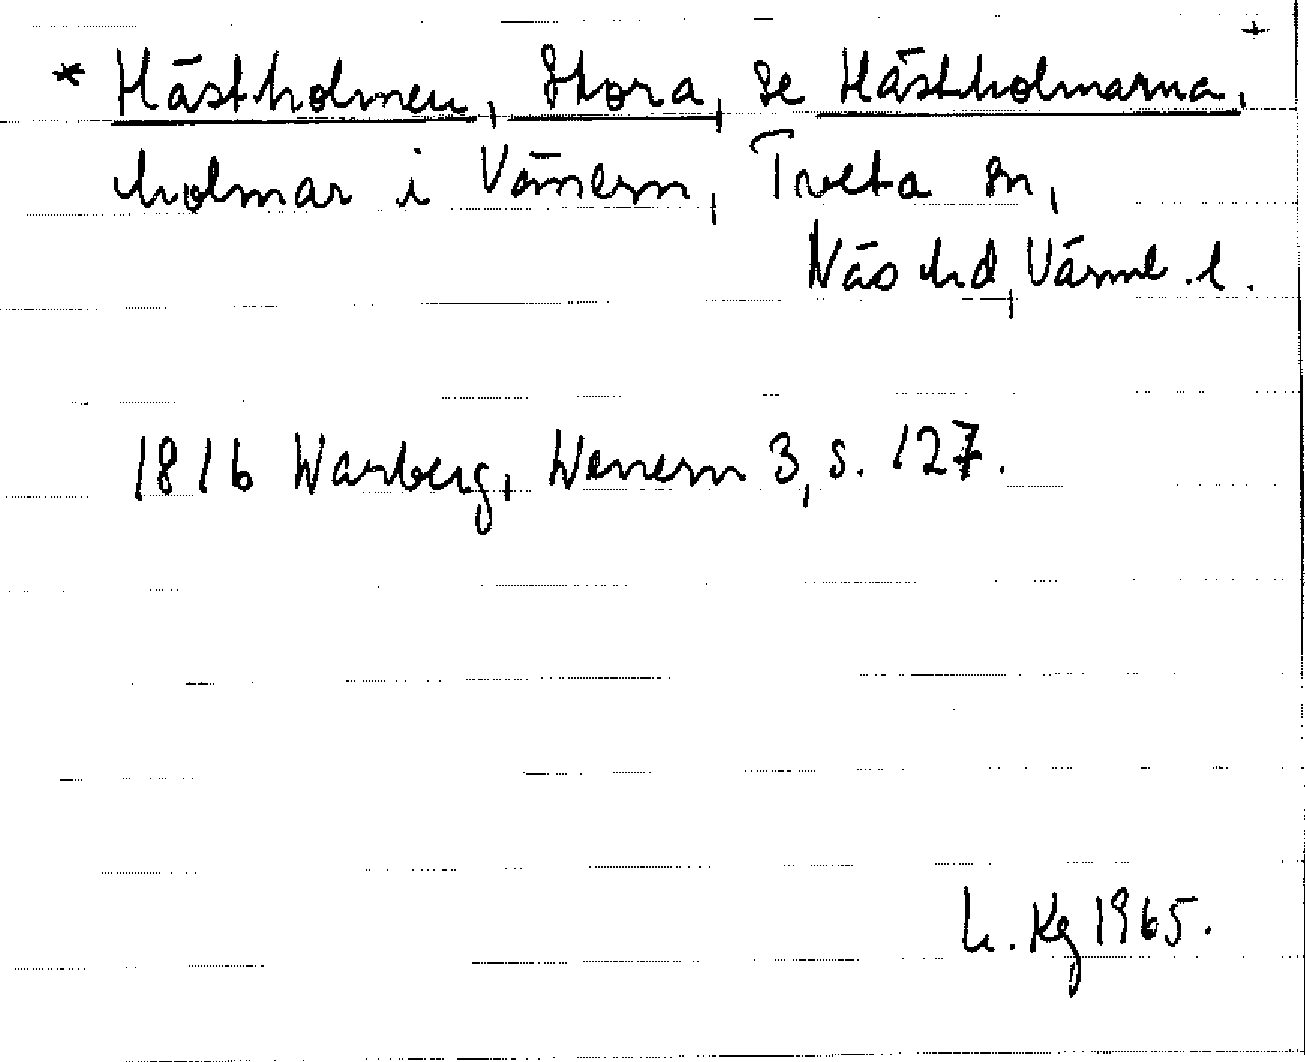 * Hästholmen, Stora, se Hästholmarna, +
holmar i Vänern, Tveta sn,
Näs hd, Värml. l.
1816 Warberg, Wenern 3, s. 127.
L. Kg 1965.